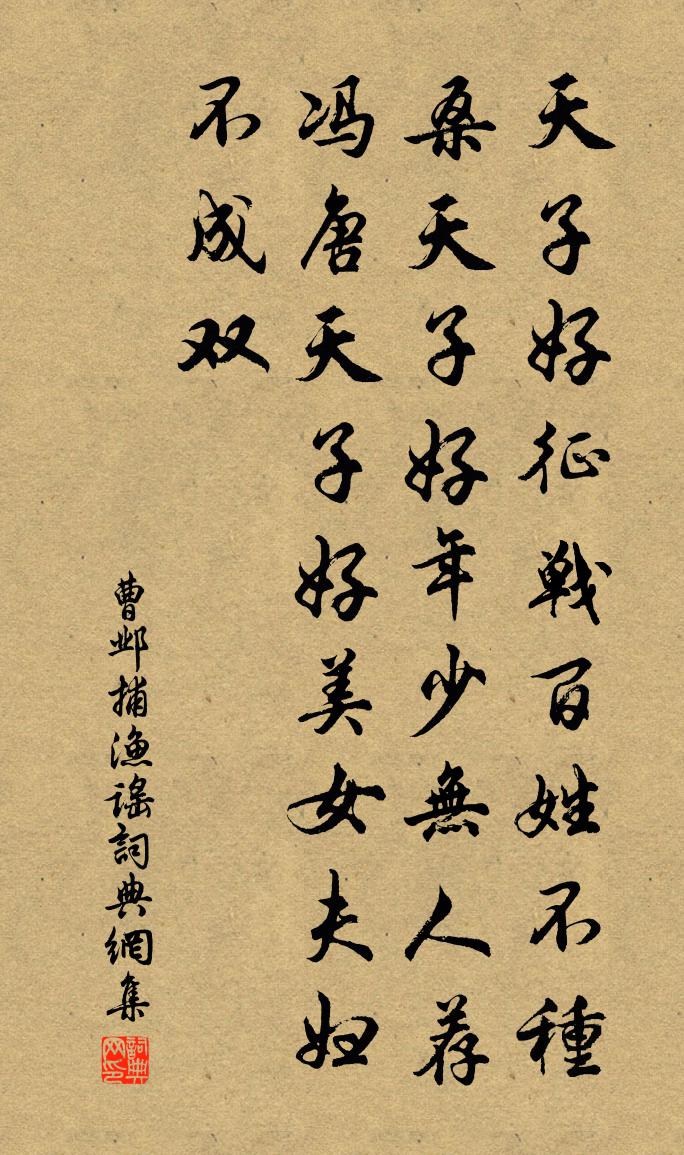 天子好征戦百姓不種
桑天子好年少無人荐
冯唐天子好美女夫妇
不成双
曹邺捕漁謡詞典網集
詞典网印